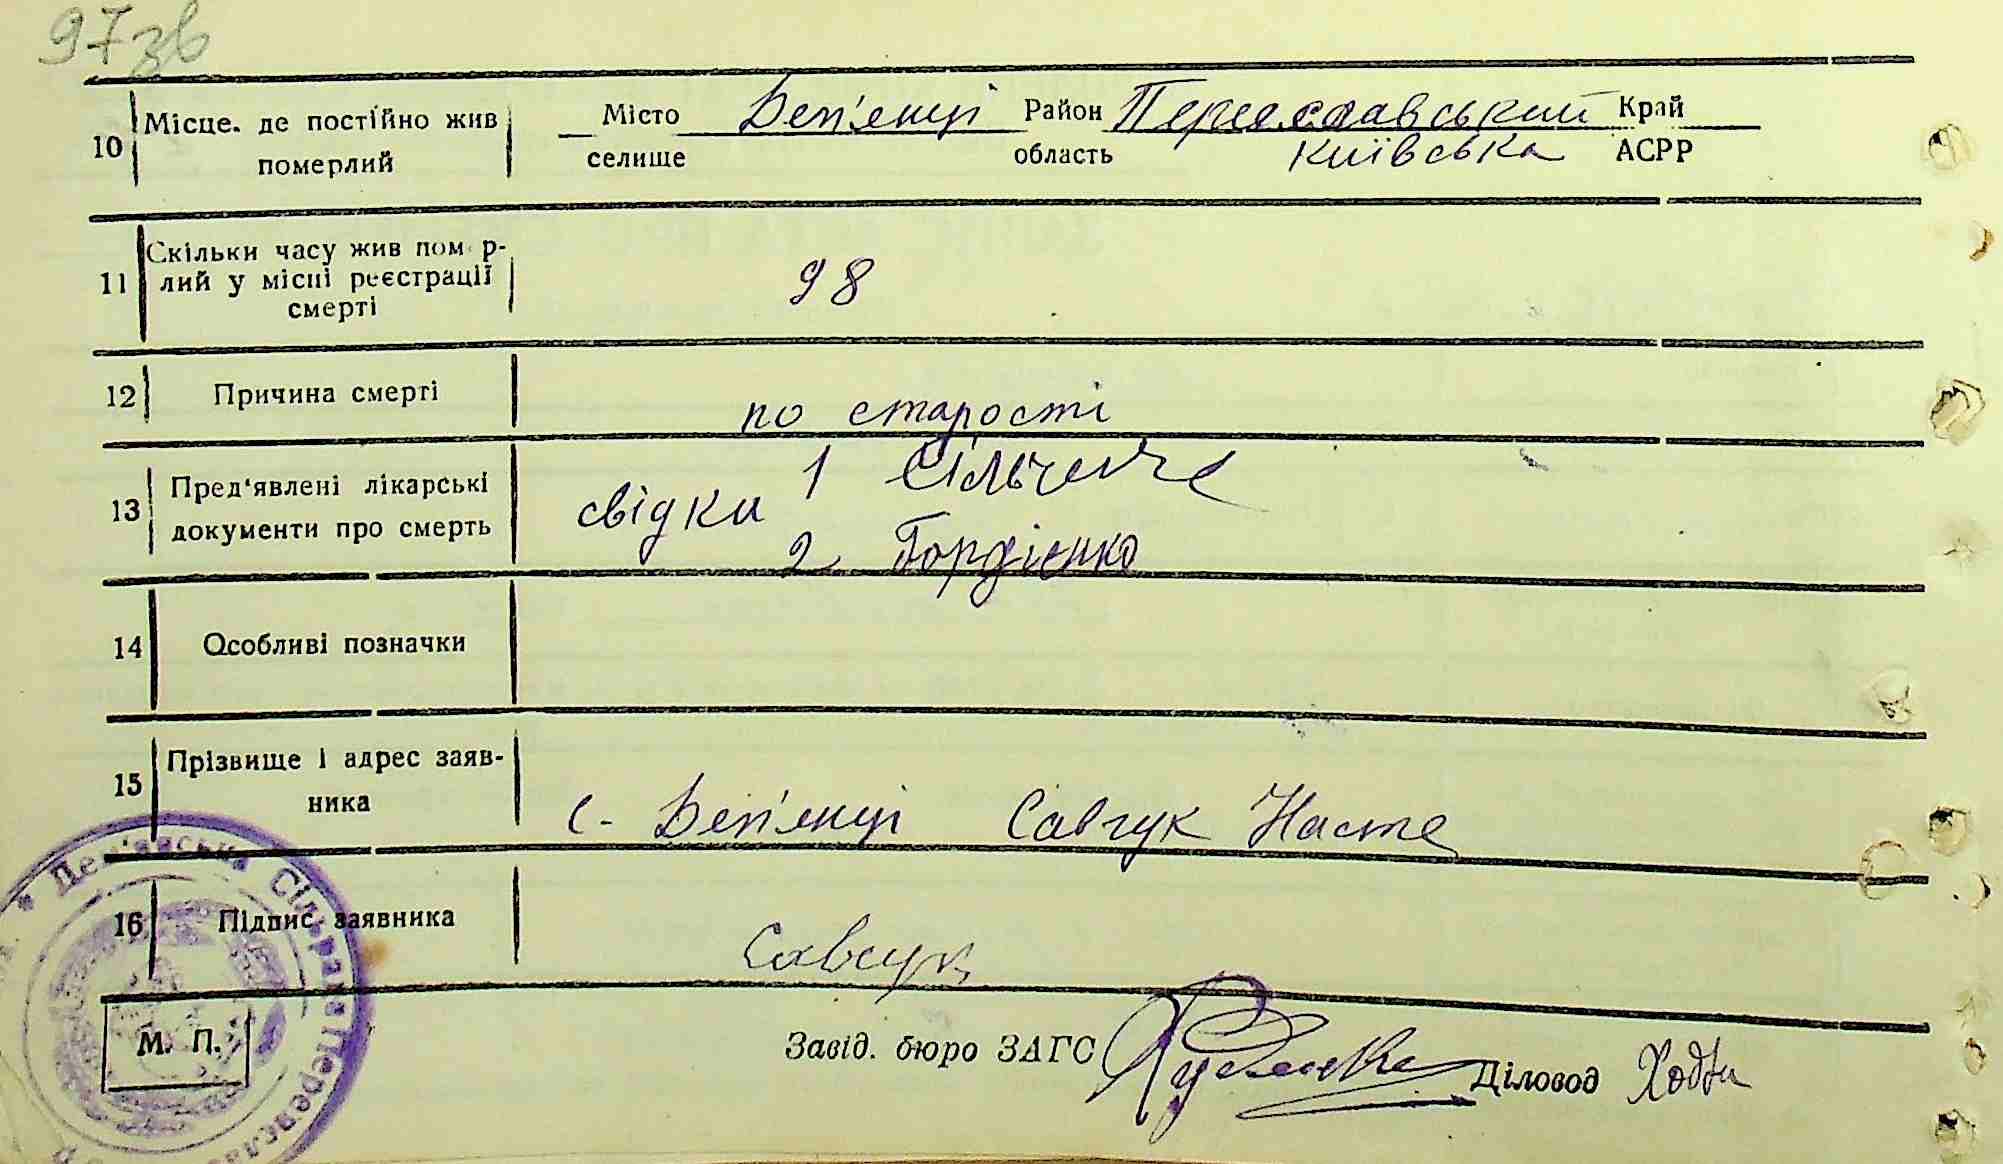 97зв
10 Місце. де постійно жив Місто Деп'янці Район Переяславський Край
померлий селище область Київська АСРР
11 Скільки часу жив помер-
лий у місці реєстрації 98
смерті
12 Причина смерті по старості
13 Пред'явлені лікарські свідки 1 Сільченко
документи про смерть 2 Гордієнко
14 Особливі позначки
15 Прізвище і адрес заяв- с. Деп'янці Савчук Настя
ника
16 Підпис заявника Савчук
М. П. Завід. бюро ЗАГС Діловод
Сільрада Переясла